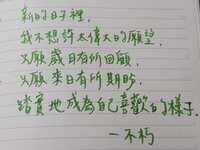 新的日子裡，
我不想許太偉大的願望，
只願歲日有所回顧，
只願來日有所期盼，
踏實地成為自己喜歡的樣子.
—不朽